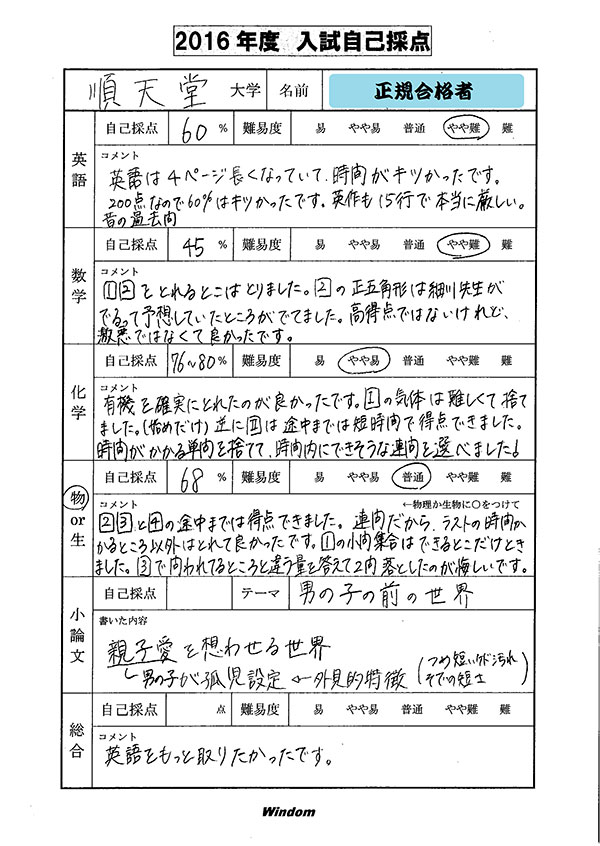 2016年度 入試自己採点
順天堂 大学 名前 正規合格者
英語 自己採点 60 % 難易度 易 やや易 普通 やや難 難
コメント
英語は4ページ長くなっていて、時間がキツかったです。
200点なので60%はキツかったです。英作も15行で本当に厳しい。
昔の過去問
数学 自己採点 45 % 難易度 易 やや易 普通 やや難 難
コメント
①②をとれるとこはとりました。②の正五角形は細川先生が
でるって予想していたところがでてました。高得点ではないけれど、
激悪ではなくて良かったです。
化学 自己採点 76~80 % 難易度 易 やや易 普通 やや難 難
コメント
有機を確実にとれたのが良かったです。Ⅰの気体は難しくて捨て
ました。(始めだけ)逆にⅡは途中までは短時間で得点できました。
時間がかかる単問を捨てて、時間内にできそうな連問を選べました!
物or生 自己採点 68 % 難易度 易 やや易 普通 やや難 難
コメント ←物理か生物に○をつけて
②③と④の途中までは得点できました。連問だから、ラストの時間か
かるところ以外はとれて良かったです。①の小問集合はできるとこだけとき
ました。③で問われてるところと違う量を答えて2問落としたのが悔しいです。
小論文 自己採点 テーマ 男の子の前の世界
書いた内容
親子愛を想わせる世界
男の子が孤児設定 ←外見的特徴 (つめ短いケド汚れ
そでの短さ)
総合 自己採点 点 難易度 易 やや易 普通 やや難 難
コメント
英語をもっと取りたかったです。
Windom